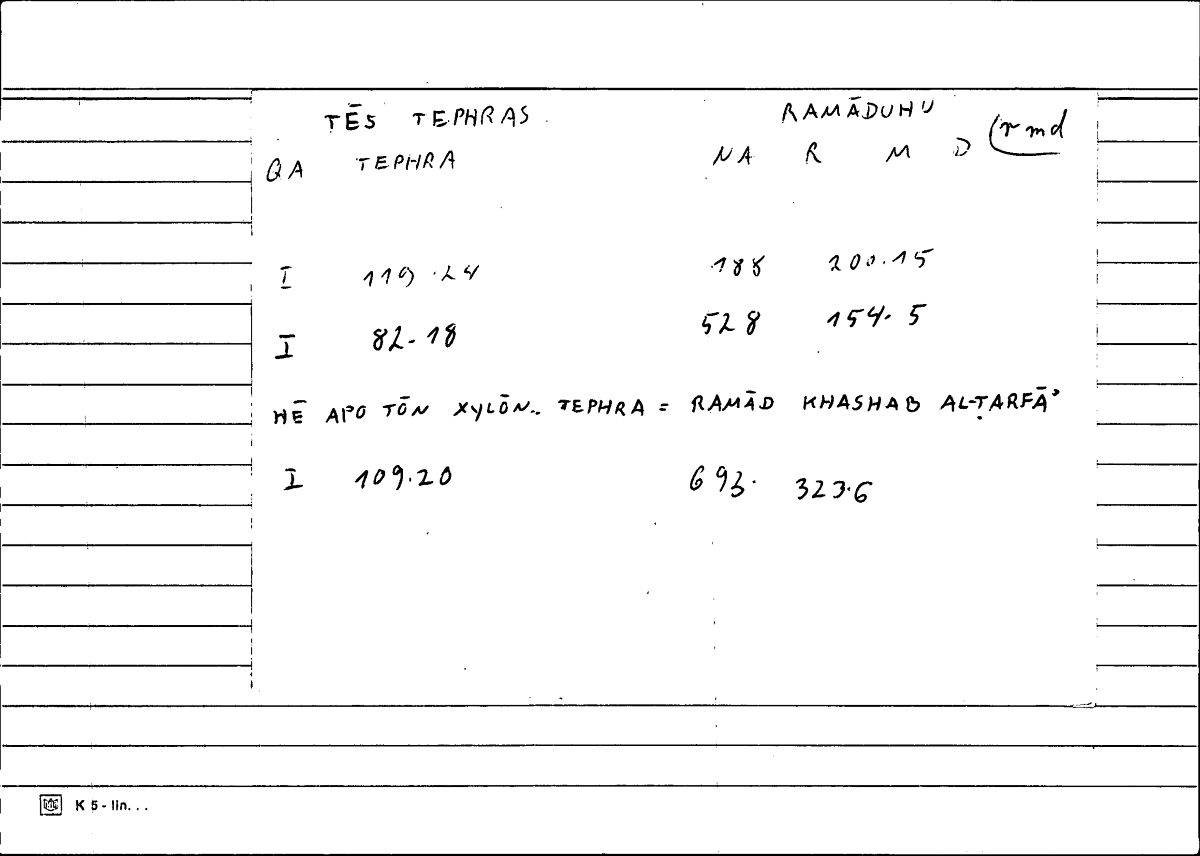 TĒS TEPHRAS RAMĀDUHU
QA TEPHRA NA R M D (rmd
I 119.24 188 200.15
I 82-18 528 154.5
HĒ APO TŌN XYLŌN.. TEPHRA = RAMĀD KHASHAB AL-ṬARFĀʾ
I 109.20 693. 323.6
K 5 - lin. . .